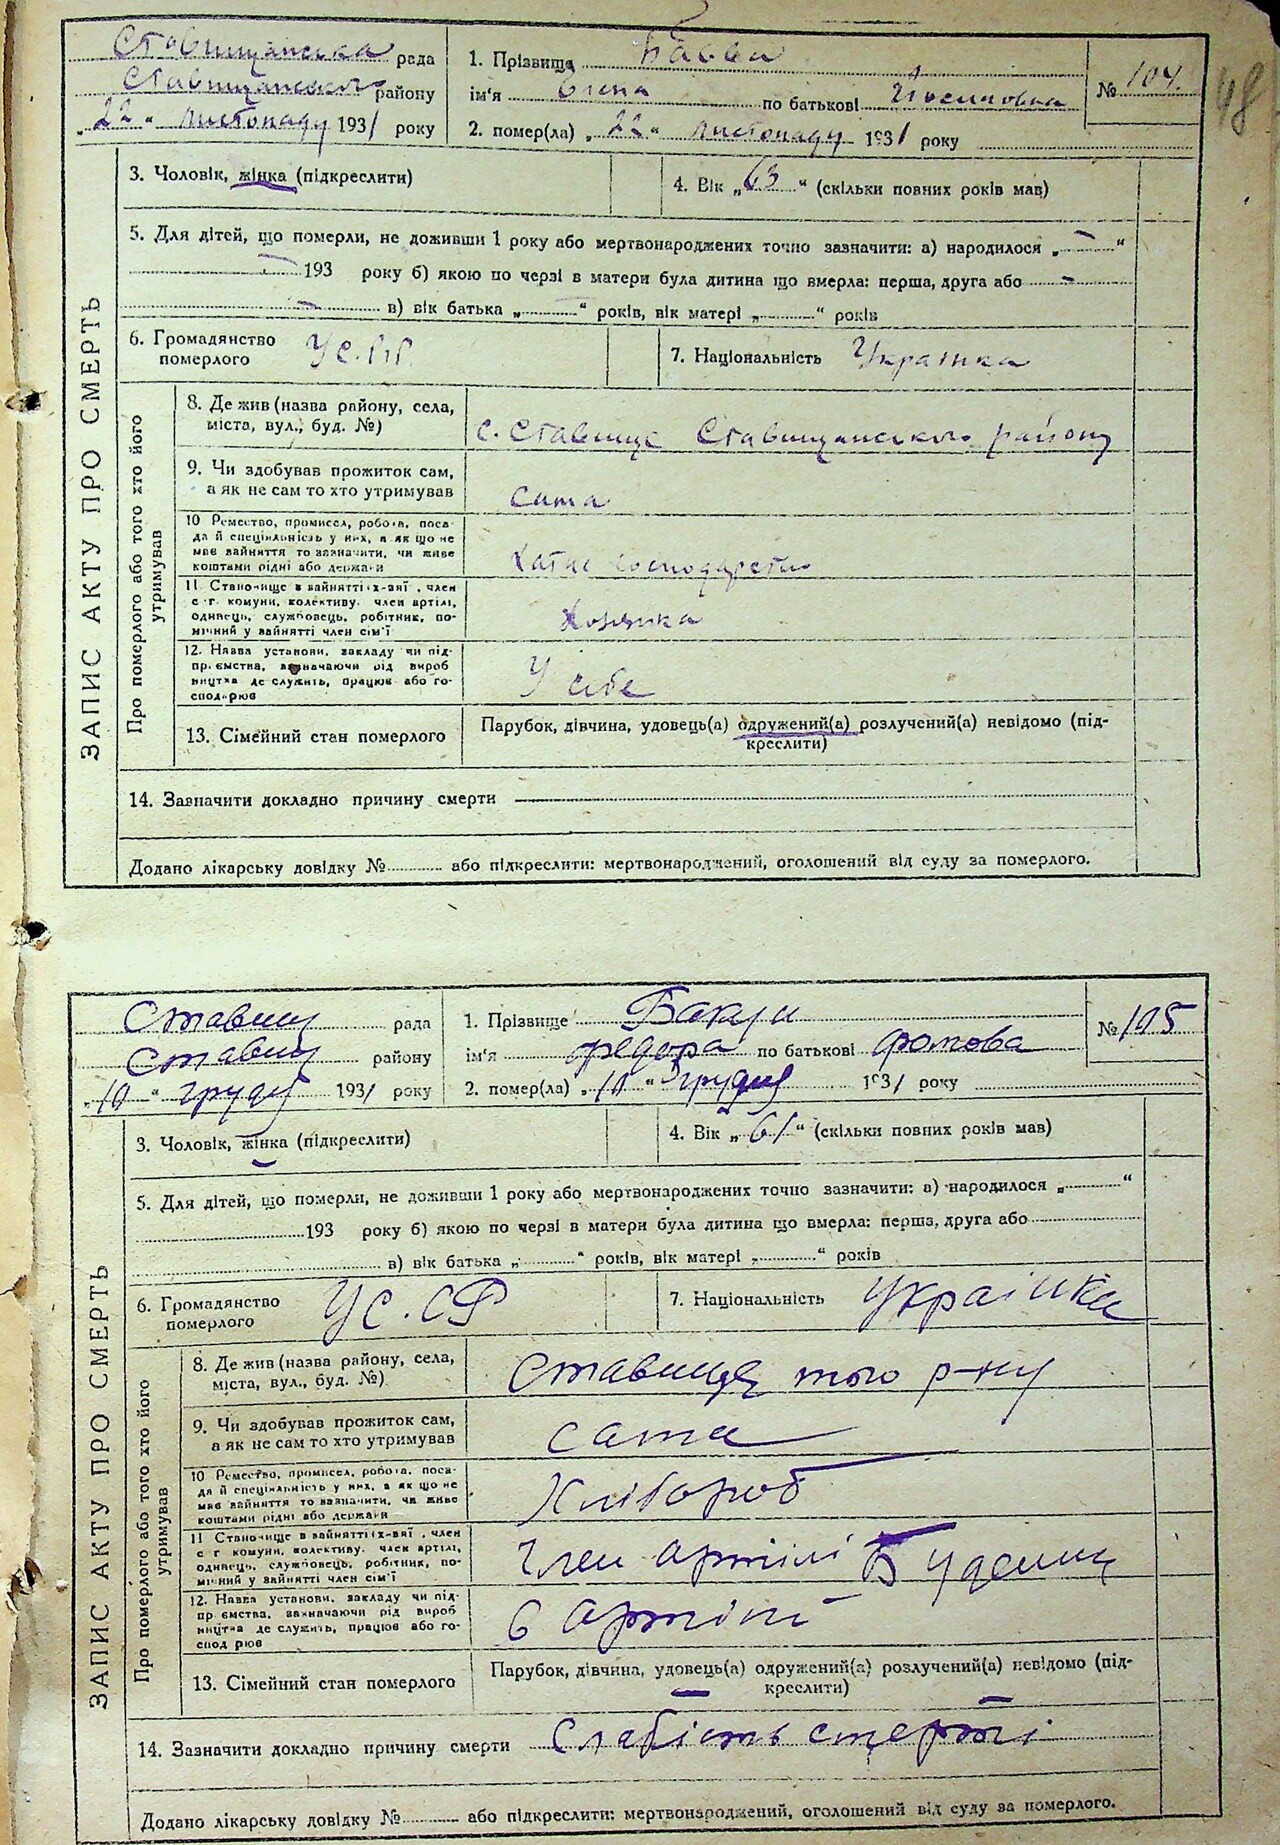 Ставищанська рада
Ставищанського району
„22" листопаду 1931 року
1. Прізвище
ім'я Єлена по батькові Йосиповна
2. помер(ла) „22" листопаду 1931 року
№ 104.
48
ЗАПИС АКТУ ПРО СМЕРТЬ
3. Чоловік, жінка (підкреслити)
4. Вік „63" (скільки повних років мав)
5. Для дітей, що померли, не доживши 1 року або мертвонароджених точно зазначити: а) народилося „—"
— 193 року б) якою по черзі в матери була дитина що вмерла: перша, друга або —
— в) вік батька „ " років, вік матері „ " років
6. Громадянство
померлого
УС.РР.
7. Національність Українка
Про померлого або того хто його
утримував
8. Де жив (назва району, села,
міста, вул., буд. №)
с. Ставище Ставищанського району
9. Чи здобував прожиток сам,
а як не сам то хто утримував
сама
10 Ремество, промисел, робота, поса-
да й спеціяльність у них, а як що не
має зайняття то зазначити, чи живе
коштами рідні або держави
Хатнє господарство
11. Становище в зайнятті їх-вяї, член
с г. комуни, колективу. член артілі,
одинець, службовець, робітник, по-
мічний у зайнятті член сім'ї
Хозяйка
12. Назва установи, закладу чи під-
пр. ємства, зазначаючи рід вироб
ництва де служить, працює або го-
сподарює
У себе
13. Сімейний стан померлого
Парубок, дівчина, удовець(а) одружений(а) розлучений(а) невідомо (під-
креслити)
14. Зазначити докладно причину смерти —
Додано лікарську довідку № або підкреслити: мертвонароджений, оголошений від суду за померлого.
Ставищ рада
Ставищ району
„10" грудня 1931 року
1. Прізвище
ім'я Федора по батькові Фомова
2. помер(ла) „10" грудня 1931 року
№ 105
ЗАПИС АКТУ ПРО СМЕРТЬ
3. Чоловік, жінка (підкреслити)
4. Вік „61" (скільки повних років мав)
5. Для дітей, що померли, не доживши 1 року або мертвонароджених точно зазначити: а) народилося „ "
193 року б) якою по черзі в матери була дитина що вмерла: перша, друга або
в) вік батька „ " років, вік матері „ " років
6. Громадянство
померлого
УС.СР
7. Національність Українка
Про померлого або того хто його
утримував
8. Де жив (назва району, села,
міста, вул., буд. №)
Ставище того р-ну
9. Чи здобував прожиток сам,
а як не сам то хто утримував
сама
10 Ремество, промисел, робота, поса-
да й спеціяльність у них, а як що не
має зайняття то зазначити, чи живе
коштами рідні або держави
Хлібороб
11 Становище в зайнятті їх-вяї, член
с г комуни, колективу. член артілі,
одинець, службовець, робітник, по-
мічний у зайнятті член сім'ї
Член артілі
12. Назва установи, закладу чи під-
пр ємства, зазначаючи рід вироб
ництва де служить, працює або го-
спод рює
в артілі
13. Сімейний стан померлого
Парубок, дівчина, удовець(а) одружений(а) розлучений(а) невідомо (під-
креслити)
14. Зазначити докладно причину смерти Слабість
Додано лікарську довідку № або підкреслити: мертвонароджений, оголошений від суду за померлого.